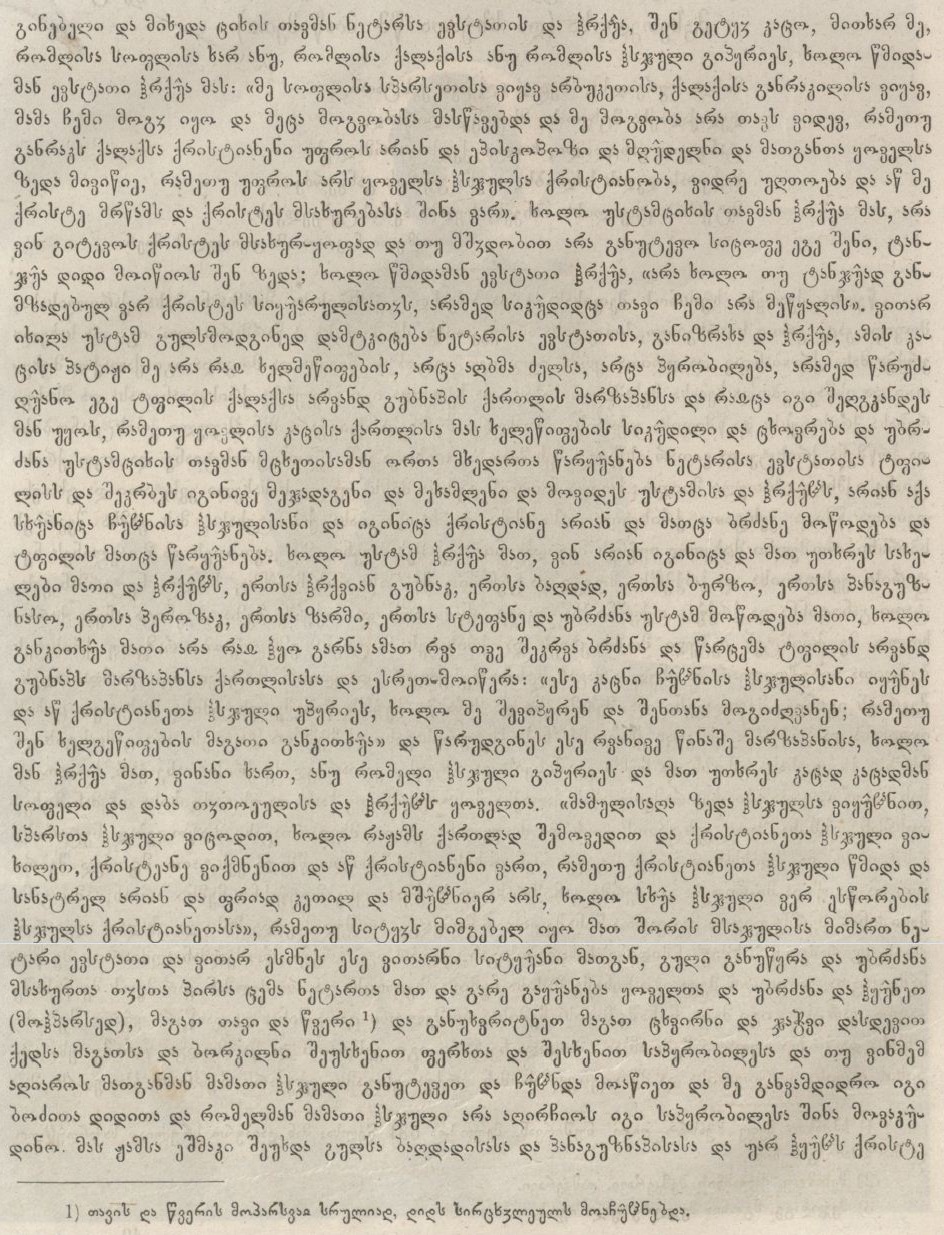 გინებელი და მიხედა ციხის თავმან ნეტარსა ევსტათის და ჰრქჳა, შენ გეტყჳ კაცო, მითხარ მე,
რომლისა სოფლისა ხარ ანუ, რომლისა ქალაქისა ანუ რომლისა ჰსჯული გიპყრიეს, ხოლო წმიდა-
მან ევსტათი ჰრქჳა მას: «მე სოფლისა სპარსეთისა ვიყავ არბუკეთისა, ქალაქისა განრაკილისა ვიყავ,
მამა ჩემი მოგჳ იყო და მეცა მოგვობასა მასწავებდა და მე მოგვობა არა თავს ვიდევ, რამეთუ
განრაკს ქალაქსა ქრისტიანენი უფროს არიან და ეპისკოპოზი და მღუდელნი და მათგანთა ყოველსა
ზედა მივიწიე, რამეთუ უფროს არს ყოველსა ჰსჯულსა ქრისტიანობა, ვიდრე უღთოება და აწ მე
ქრისტე მრწამს და ქრისტეს მსახურებასა შინა ვარ». ხოლო უსტამციხის თავმან ჰრქჳა მას, არა
ვინ გიტევოს ქრისტეს მსახურ-ყოფად და თუ მშჳდობით არა განუტევო სიცოფე ეგე შენი, ტან-
ჯჳა დიდი მოიწიოს შენ ზედა; ხოლო წმიდამან ევსტათი ჰრქჳა, «არა ხოლო თუ ტანჯუად გან-
მზადებულ ვარ ქრისტეს სიყუარულისათჳს, არამედ სიკუდიდცა თავი ჩემი არა მეწყალის». ვითარ
იხილა უსტამ გულსმოდგინედ დამტკიცება ნეტარისა ევსტათისა, განიზრახა და ჰრქჳა, ამის კა-
ცისა პატიჟი მე არა რაჲ ხელმეწიფების, არცა აღბმა ძელსა, არცა პყრობილება, არამედ წარუძ-
ღუანო ეგე ტფილის ქალაქსა არვანდ გუბნაპის ქართლის მარზაპანსა და რაჲცა იგი შეღგვანდეს
მან უყოს, რამეთუ ყოველისა კაცისა ქართლისა მას ხელეწიფების სიკუდილი და ცხოვრება და უბრ-
ძანა უსტამციხის თავმან მცხეთისამან ორთა მხედართა წარყუანება ნეტარისა ევსტათისა ტფი-
ლისს და შეკრბეს იგინივე მეჯადაგენი და მეხამლენი და მოვიდეს უსტამისა და ჰრქუჱს, არიან აქა
სხუანიცა ჩუჱნისა ჰსჯულისანი და იგინიცა ქრისტიანე არიან და მათცა ბრძანე მოწოდება და
ტფილის მათცა წარყუანება. ხოლო უსტამ ჰრქჳა მათ, ვინ არიან იგინიცა და მათ უთხრეს სახე-
ლები მათი და ჰრქუჱს, ერთსა ჰრქვიან გუბნაკ, ერთსა ბაღდად, ერთსა ბურზო, ერთსა პანაგუზ-
ნასო, ერთსა პეროზაკ, ერთსა ზარმი, ერთსა სტეფანე და უბრძანა უსტამ მოწოდება მათი, ხოლო
განკითხუა მათი არა რაჲ ჰყო გარნა ამათ რვა თვე შეკრვა ბრძანა და წარცემა ტფილის არვანდ
გუბნაპს მარზაპანსა ქართლისასა და ესრეთ-მოიწერა: «ესე კაცნი ჩუჱნისა ჰსჯულისანი იყუნეს
და აწ ქრისტიანეთა ჰსჯული უპყრიეს, ხოლო მე შევიპყრენ და შენთანა მოგიძღვანენ; რამეთუ
შენ ხელგეწიფების მაგათი განკითხუა» და წარუდგინეს ესე რვანივე წინაშე მარზაპანისა, ხოლო
მან ჰრქჳა მათ, ვინანი ხართ, ანუ რომელი ჰსჯული გიპყრიეს და მათ უთხრეს კაცად კაცადმან
სოფელი და დაბა თჳთოეულისა და ჰრქუჱს ყოველთა. «მამულისაღა ზედა ჰსჯულსა ვიყუჱნით,
სპარსთა ჰსჯული ვიცოდით, ხოლო რაჟამს ქართლად შემოვედით და ქრისტიანეთა ჰსჯული ვი-
ხილეთ, ქრისტეანე ვიქმნენით და აწ ქრისტიანენი ვართ, რამეთუ ქრისტიანეთა ჰსჯული წმიდა და
სანატრელ არიან და ფრიად კეთილ და მშუჱნიერ არს, ხოლო სხუა ჰსჯული ვერ ესწორების
ჰსჯულსა ქრისტიანეთასა», რამეთუ სიტყჳს მიმგებელ იყო მათ შორის მსაჯულისა მიმართ ნე-
ტარი ევსტათი და ვითარ ესმნეს ესე ვითარნი სიტყუანი მათგან, გული განუწყრა და უბრძანა
მსახურთა თჳსთა პირსა ცემა ნეტართა მათ და გარე გაყუანება ყოველთა და უბრძანა და ჰყუნეთ
(მოჰპარსედ), მაგათ თავი და წვერი ¹) და განუხვრიტნეთ მაგათ ცხვირნი და ჯაჭვი დასდევით
ქედსა მაგათსა და ბორკილნი შეუსხენით ფერხთა და შესხენით საპყრობილესა და თუ ვინმემ
აღიაროს მათგანმან მამათი ჰსჯული განუტევეთ და ჩუჱნდა მოაწიეთ და მე განვამდიდრო იგი
ბოძითა დიდითა და რომელმან მამათი ჰსჯული არა აღირჩიოს იგი საპყრობილესა შინა მოვაკუ-
დინო. მას ჟამსა ეშმაკი შეუხდა გულსა ბაღდადისასა და პანაგუზნაპისასა და უარ ჰყუჱს ქრისტე
1) თავის და წვერის მოპარსვაჲ სრულიად, დიდს სირცხჳლეულს მოაჩუჱნებდა.